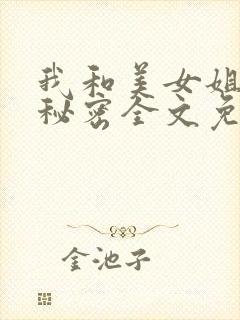 我和美女姐
秘密全文免
金池子